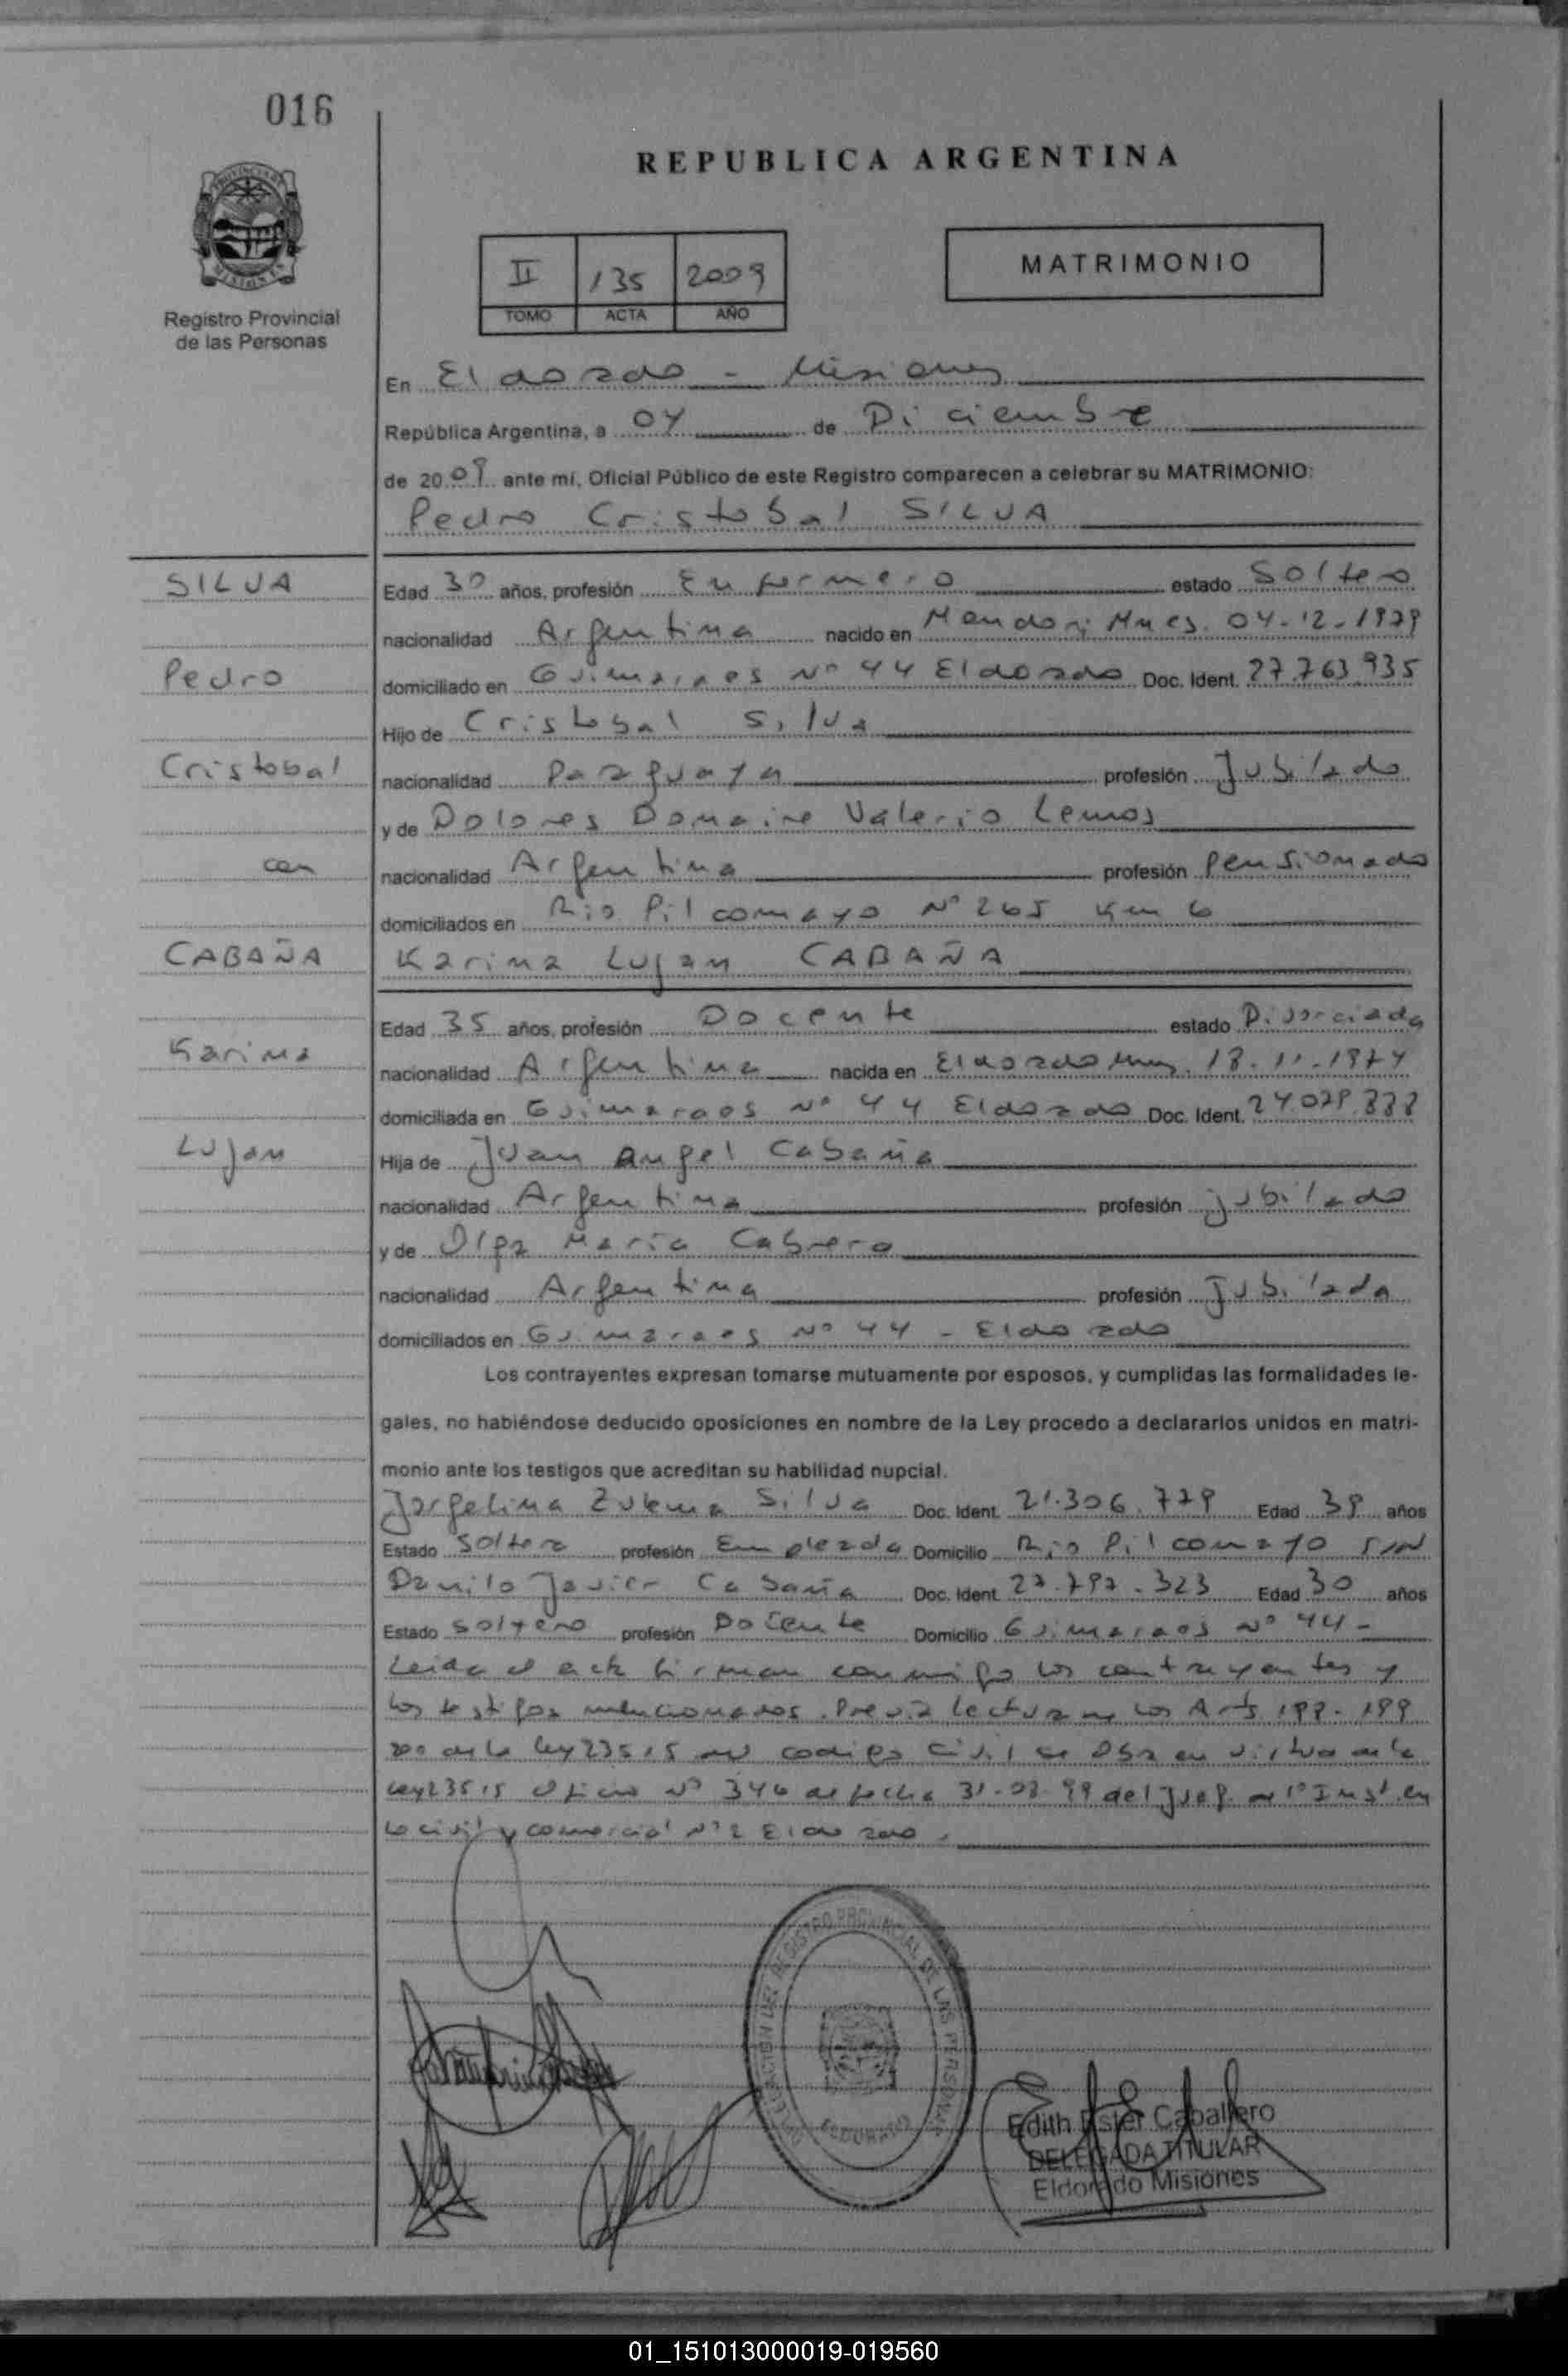 016
REPUBLICA ARGENTINA
Registro Provincial
de las Personas
II 135 2009
TOMO ACTA AÑO
MATRIMONIO
En Eldorado - Misiones
República Argentina, a 04 de Diciembre
de 2009 ante mí, Oficial Público de este Registro comparecen a celebrar su MATRIMONIO:
Pedro Cristobal SILVA
SILVA
Edad 30 años, profesión Enfermero estado Soltero
nacionalidad Argentina nacido en Mnes. 04-12-1979
Pedro
domiciliado en Guimaraes Nº 44 Eldorado Doc. Ident. 27.763.935
Hijo de Cristobal Silva
Cristobal
nacionalidad Paraguaya profesión Jubilado
y de Dolores Valerio Lemos
con
nacionalidad Argentina profesión Pensionada
domiciliados en Rio Pilcomayo Nº 265 Km 6
CABAÑA
Karina Lujan CABAÑA
Edad 35 años, profesión Docente estado Divorciada
Karina
nacionalidad Argentina nacida en Eldorado Mnes. 18-11-1974
domiciliada en Guimaraes Nº 44 Eldorado Doc. Ident.
Lujan
Hija de Juan Angel Cabaña
nacionalidad Argentina profesión jubilado
y de Olga Maria Cabrera
nacionalidad Argentina profesión Jubilada
domiciliados en Guimaraes Nº 44 - Eldorado
Los contrayentes expresan tomarse mutuamente por esposos, y cumplidas las formalidades le-
gales, no habiéndose deducido oposiciones en nombre de la Ley procedo a declararlos unidos en matri-
monio ante los testigos que acreditan su habilidad nupcial.
Jorgelina Zulema Silva Doc. Ident. 21.306.779 Edad 39 años
Estado Soltera profesión Empleada Domicilio Rio Pilcomayo S/N
Danilo Javier Cabaña Doc. Ident. 27.797.323 Edad 30 años
Estado Soltero profesión Docente Domicilio Guimaraes Nº 44-
Leida el acta firman conmigo los contrayentes y
los testigos mencionados. Previa lectura de los Arts 198-199
200 de la ley 23515 del codigo Civil se Obs en virtud de la
ley 23515 Oficio Nº 346 de fecha 31-08-99 del Juzg. de 1º Inst. en
lo civil y comercial Nº 2 Eldorado.
DELEGACION DEL REGISTRO PROVINCIAL DE LAS PERSONAS
ELDORADO
Edith Ester Caballero
DELEGADA TITULAR
Eldorado Misiones
01_151013000019-019560